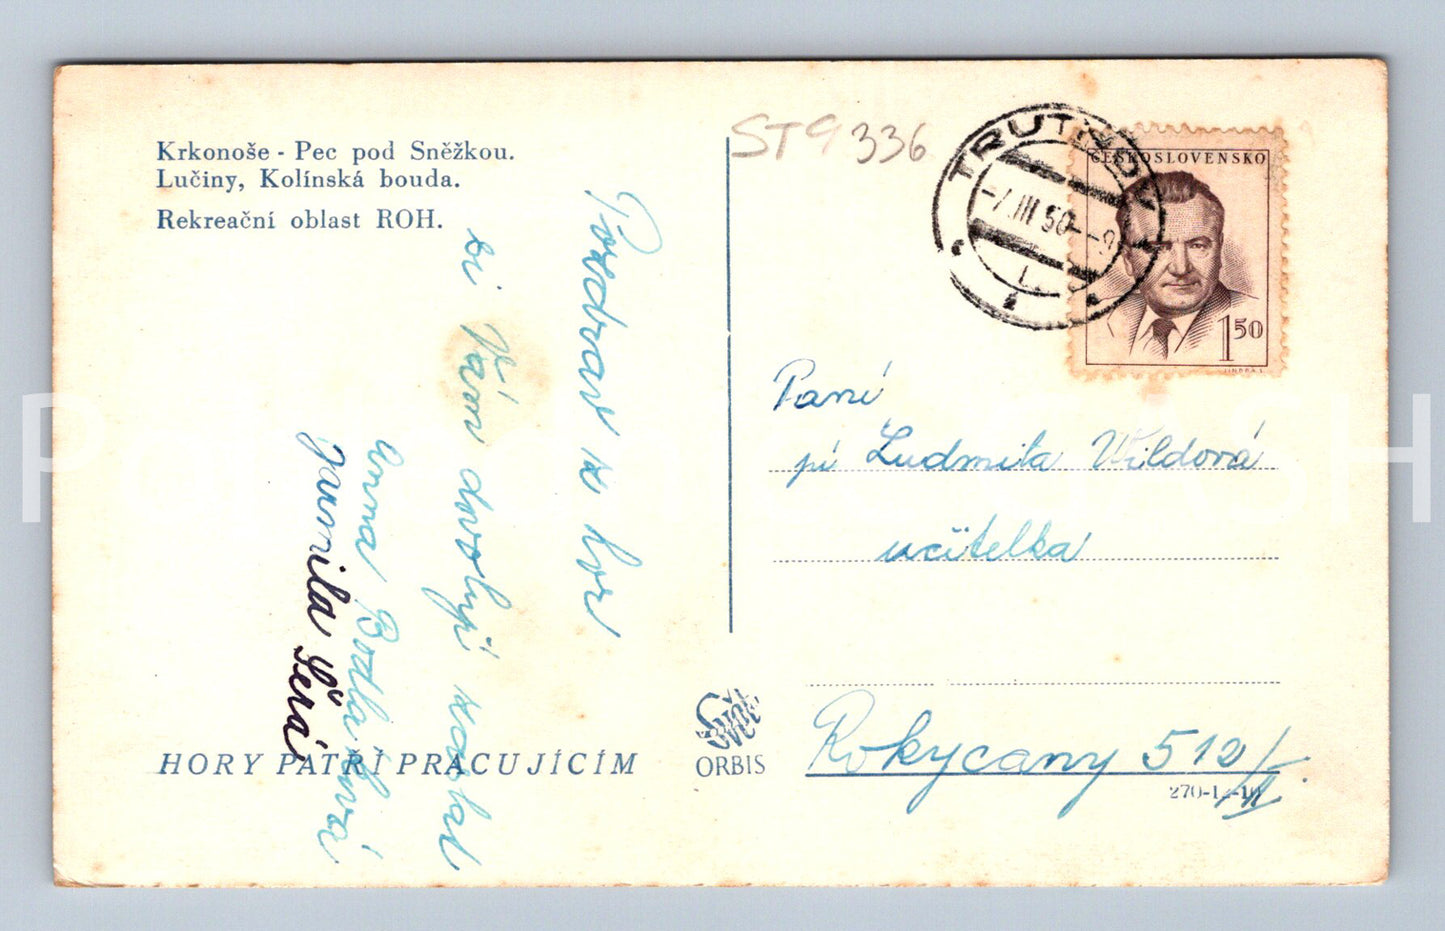 Krkonoše - Pec pod Sněžkou.
Lučiny, Kolínská bouda.
Rekreační oblast ROH.
ST9336
TRUTNOV
ČESKOSLOVENSKO
150
Pozdrav z hor
si Vám dovolují zaslat
Anna
Jarmila Šerá
Paní
pí Ludmila Wildová
učitelka
Rokycany 512/II.
HORY PATŘÍ PRACUJÍCÍM
ORBIS